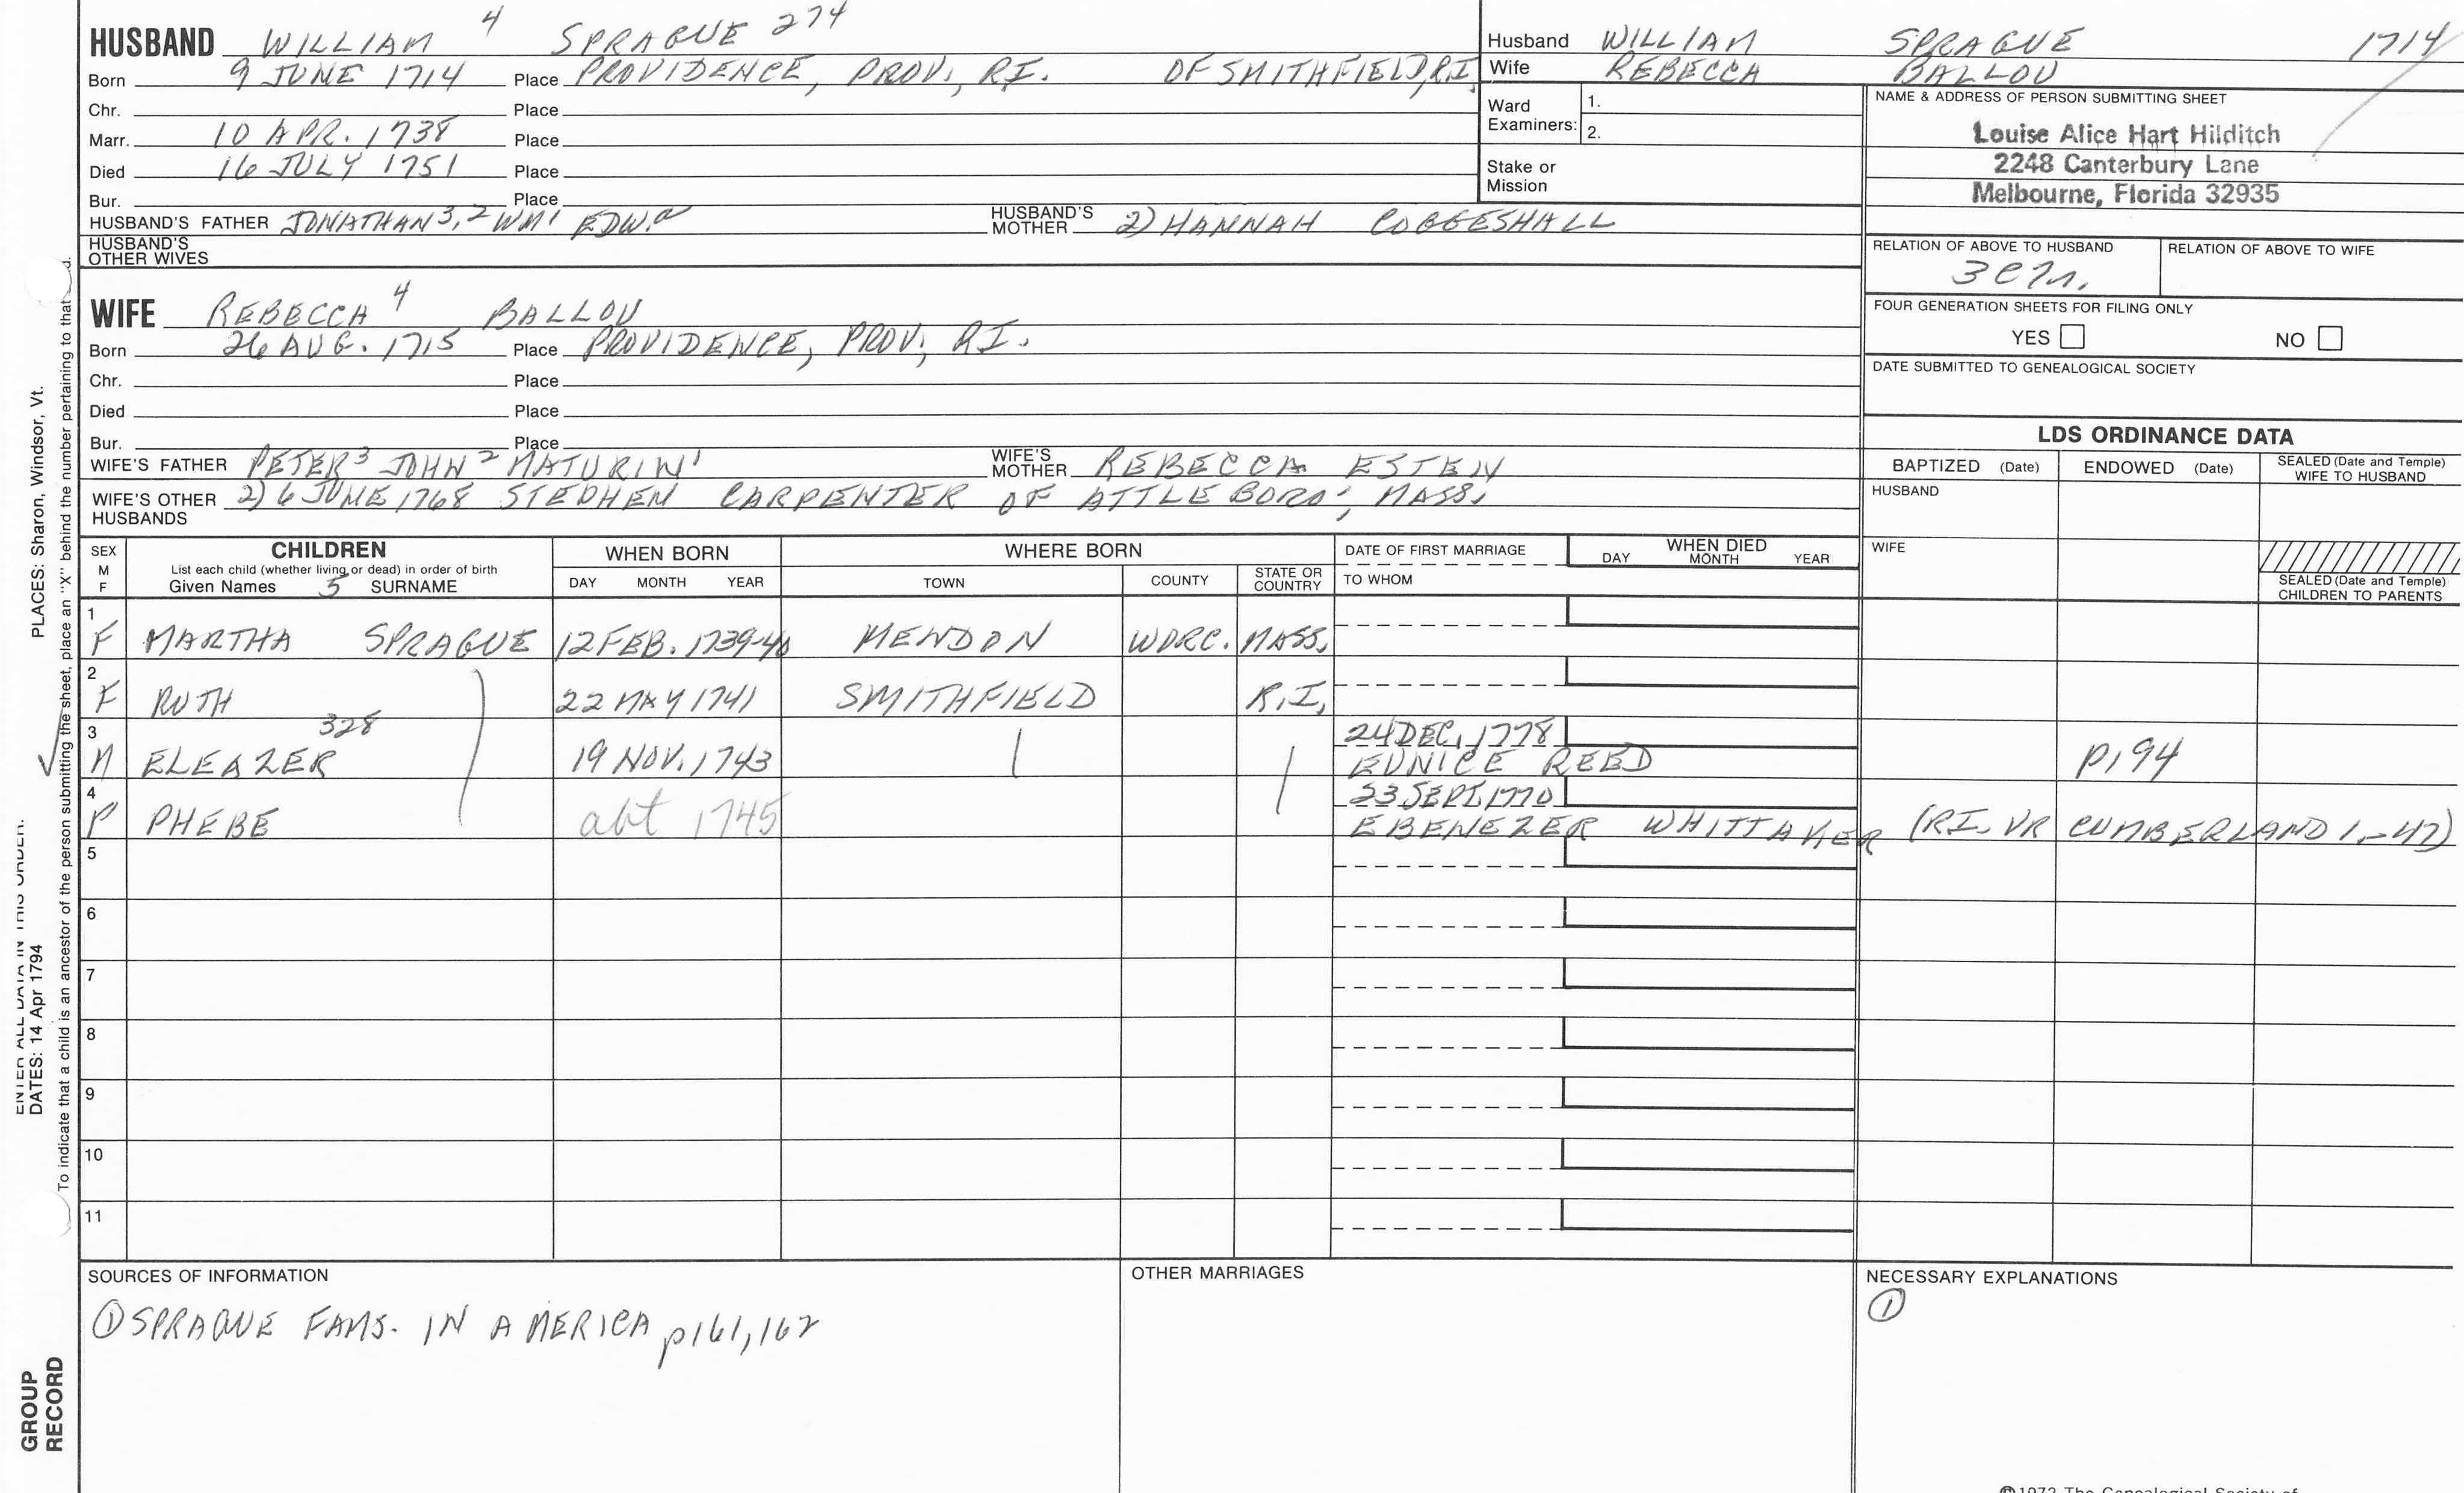 HUSBAND WILLIAM 4 SPRAGUE 274
Born 9 JUNE 1714 Place PROVIDENCE, PROV, RI. OF SMITHFIELD, RI
Chr. Place
Marr. 10 APR. 1738 Place
Died 16 JULY 1751 Place
Bur. Place
HUSBAND'S FATHER JONATHAN 3, 2 WM 1 EDW. a HUSBAND'S MOTHER 2) HANNAH COGGESHALL
HUSBAND'S OTHER WIVES
Husband WILLIAM SPRAGUE 1714
Wife REBECCA BALLOU
Ward Examiners: 1.
2.
Stake or Mission
NAME & ADDRESS OF PERSON SUBMITTING SHEET
Louise Alice Hart Hilditch
2248 Canterbury Lane
Melbourne, Florida 32935
RELATION OF ABOVE TO HUSBAND RELATION OF ABOVE TO WIFE
FOUR GENERATION SHEETS FOR FILING ONLY
YES NO
DATE SUBMITTED TO GENEALOGICAL SOCIETY
WIFE REBECCA 4 BALLOU
Born 26 AUG. 1715 Place PROVIDENCE, PROV, RI.
Chr. Place
Died Place
Bur. Place
WIFE'S FATHER PETER 3 JOHN 2 MATURIN 1 WIFE'S MOTHER REBECCA ESTEN
WIFE'S OTHER HUSBANDS 2) 6 JUNE 1768 STEPHEN CARPENTER OF ATTLEBORO, MASS.
LDS ORDINANCE DATA
BAPTIZED (Date) ENDOWED (Date) SEALED (Date and Temple) WIFE TO HUSBAND
HUSBAND
WIFE
SEALED (Date and Temple) CHILDREN TO PARENTS
SEX M F CHILDREN WHEN BORN WHERE BORN DATE OF FIRST MARRIAGE WHEN DIED
List each child (whether living or dead) in order of birth
Given Names 5 SURNAME DAY MONTH YEAR TOWN COUNTY STATE OR COUNTRY TO WHOM DAY MONTH YEAR
1 F MARTHA SPRAGUE 12 FEB. 1739-40 MENDON WORC. MASS.
2 F RUTH 22 MAY 1741 SMITHFIELD R.I,
3 M ELEAZER 328 19 NOV. 1743 24 DEC, 1778
EUNICE REED p194
4 PHEBE abt 1745 23 SEPT. 1770
EBENEZER WHITTAKER (RI. VR CUMBERLAND 1-47)
5
6
7
8
9
10
11
SOURCES OF INFORMATION
① SPRAGUE FAMS. IN AMERICA p161, 162
OTHER MARRIAGES
NECESSARY EXPLANATIONS
①
PLACES: Sharon, Windsor, Vt.
ENTER ALL DATA IN THIS ORDER:
DATES: 14 Apr 1794
To indicate that a child is an ancestor of the person submitting the sheet, place an "X" behind the number pertaining to that d.
GROUP
RECORD
©1972 The Genealogical Society of